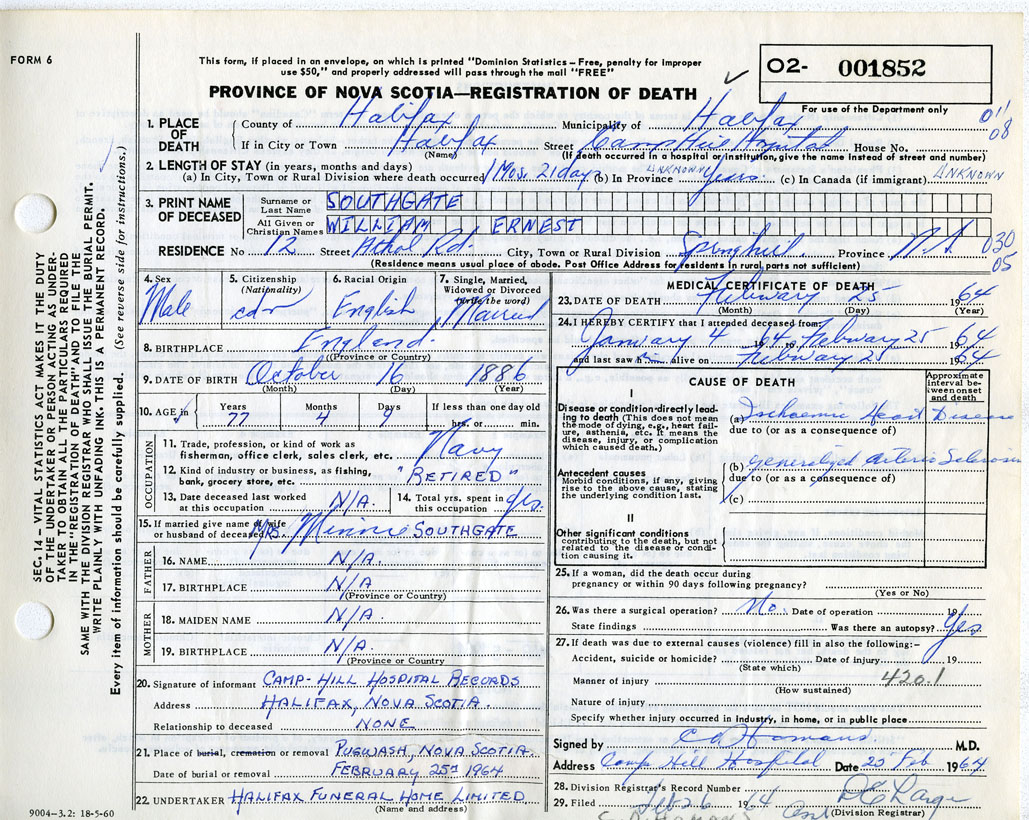 FORM 6
This form, if placed in an envelope, on which is printed "Dominion Statistics – Free, penalty for improper
use $50," and properly addressed will pass through the mail "FREE"
PROVINCE OF NOVA SCOTIA—REGISTRATION OF DEATH
O2- 001852
For use of the Department only
011
08
1. PLACE OF DEATH
County of Halifax Municipality of Halifax
If in City or Town Halifax Street Camp Hill Hospital House No.
(Name) (If death occurred in a hospital or institution, give the name instead of street and number)
2. LENGTH OF STAY (in years, months and days)
(a) In City, Town or Rural Division where death occurred 1 Mos. 21 days (b) In Province UNKNOWN Years. (c) In Canada (if immigrant) UNKNOWN
3. PRINT NAME OF DECEASED
Surname or Last Name SOUTHGATE
All Given or Christian Names WILLIAM ERNEST
RESIDENCE No 12 Street Athol Rd. City, Town or Rural Division Springhill Province N S
030
05
(Residence means usual place of abode. Post Office Address for residents in rural parts not sufficient)
4. Sex
Male
5. Citizenship
(Nationality)
cdn
6. Racial Origin
English
7. Single, Married,
Widowed or Divorced
(write the word)
Married
8. BIRTHPLACE England.
(Province or Country)
9. DATE OF BIRTH October 16 1886
(Month) (Day) (Year)
10. AGE in Years Months Days If less than one day old
77 4 9 hrs. or min.
OCCUPATION
11. Trade, profession, or kind of work as
fisherman, office clerk, sales clerk, etc. Navy
12. Kind of industry or business, as fishing,
bank, grocery store, etc. "RETIRED"
13. Date deceased last worked
at this occupation N/A.
14. Total yrs. spent in
this occupation yrs.
15. If married give name of wife
or husband of deceased MRS. Minnie SOUTHGATE
FATHER
16. NAME N/A.
17. BIRTHPLACE N/A
(Province or Country)
MOTHER
18. MAIDEN NAME N/A.
19. BIRTHPLACE N/A.
(Province or Country
20. Signature of informant CAMP-HILL HOSPITAL RECORDS
Address HALIFAX, NOVA SCOTIA.
Relationship to deceased NONE
21. Place of burial, cremation or removal PUGWASH, NOVA SCOTIA
Date of burial or removal FEBRUARY 25TH 1964
22. UNDERTAKER HALIFAX FUNERAL HOME LIMITED.
(Name and address)
MEDICAL CERTIFICATE OF DEATH
23. DATE OF DEATH February 25 1964
(Month) (Day) (Year)
24. I HEREBY CERTIFY that I attended deceased from:
January 4 1964 to February 25 1964
and last saw him alive on February 25 1964
CAUSE OF DEATH
Approximate
interval be-
tween onset
and death
I
Disease or condition directly lead-
ing to death (This does not mean
the mode of dying, e.g., heart fail-
ure, asthenia, etc. It means the
disease, injury, or complication
which caused death.)
(a) Ischaemic Heart Disease
due to (or as a consequence of)
Antecedent causes
Morbid conditions, if any, giving
rise to the above cause, stating
the underlying condition last.
(b) Generalized Arterio Sclerosis
due to (or as a consequence of)
(c)
II
Other significant conditions
contributing to the death, but not
related to the disease or condi-
tion causing it.
25. If a woman, did the death occur during
pregnancy or within 90 days following pregnancy?
(Yes or No)
26. Was there a surgical operation? No. Date of operation 19
State findings Was there an autopsy? Yes.
27. If death was due to external causes (violence) fill in also the following:–
Accident, suicide or homicide? Date of injury 19
(State which)
Manner of injury 420.1
(How sustained)
Nature of injury
Specify whether injury occurred in industry, in home, or in public place
Signed by C D Homans M.D.
Address Camp Hill Hospital Date 25 Feb 1964
28. Division Registrar's Record Number
29. Filed Feb 26 1964
(Division Registrar)
SEC. 14 – VITAL STATISTICS ACT MAKES IT THE DUTY
OF THE UNDERTAKER OR PERSON ACTING AS UNDER-
TAKER TO OBTAIN ALL THE PARTICULARS REQUIRED
IN THE "REGISTRATION OF DEATH" AND TO FILE THE
SAME WITH THE DIVISION REGISTRAR WHO SHALL ISSUE THE BURIAL PERMIT.
WRITE PLAINLY WITH UNFADING INK. THIS IS A PERMANENT RECORD.
Every item of information should be carefully supplied. (See reverse side for instructions.)
9004–3.2: 18-5-60